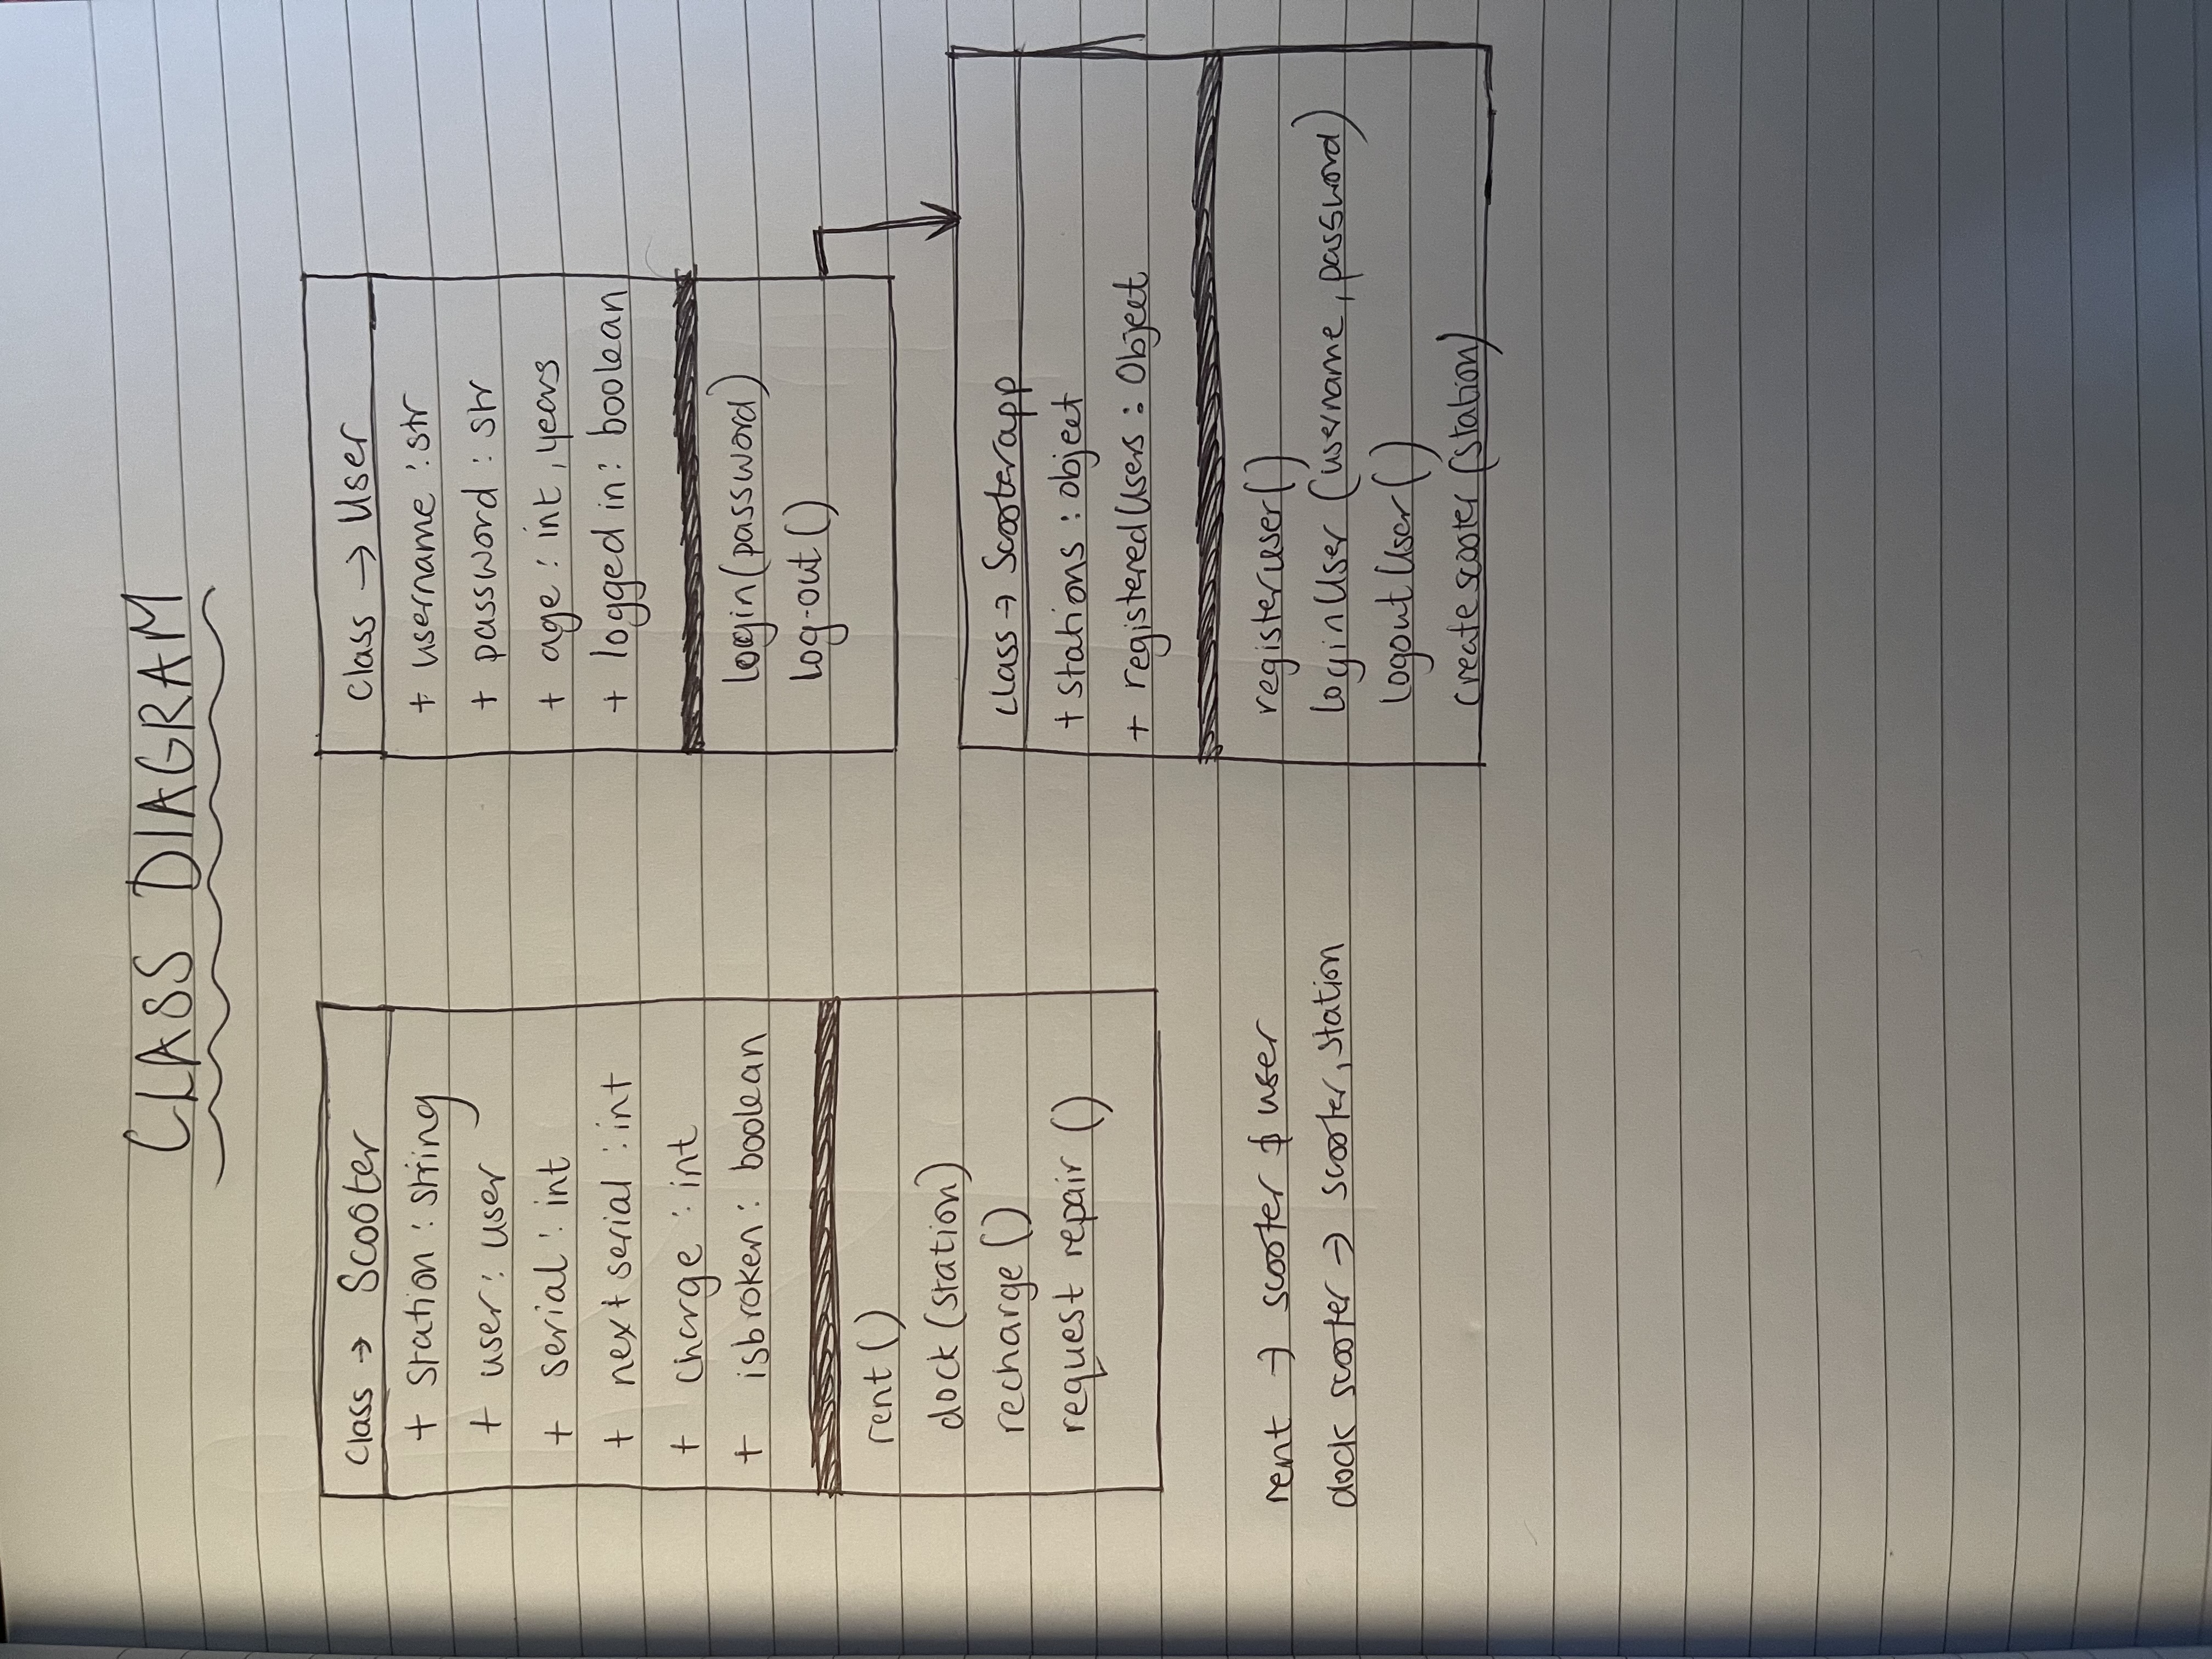 CLASS DIAGRAM
class → Scooter
+ station : string
+ user : user
+ serial : int
+ next serial : int
+ charge : int
+ isbroken : boolean
rent ()
dock (station)
recharge ()
request repair ()
rent → scooter & user
dock scooter → scooter, station
class → User
+ username : str
+ password : str
+ age : int, years
+ logged in : boolean
login (password)
log-out ()
class → Scooterapp
+ stations : object
+ registeredUsers : Object
registeruser ()
loginUser (username, password)
logout User ()
create scooter (station)